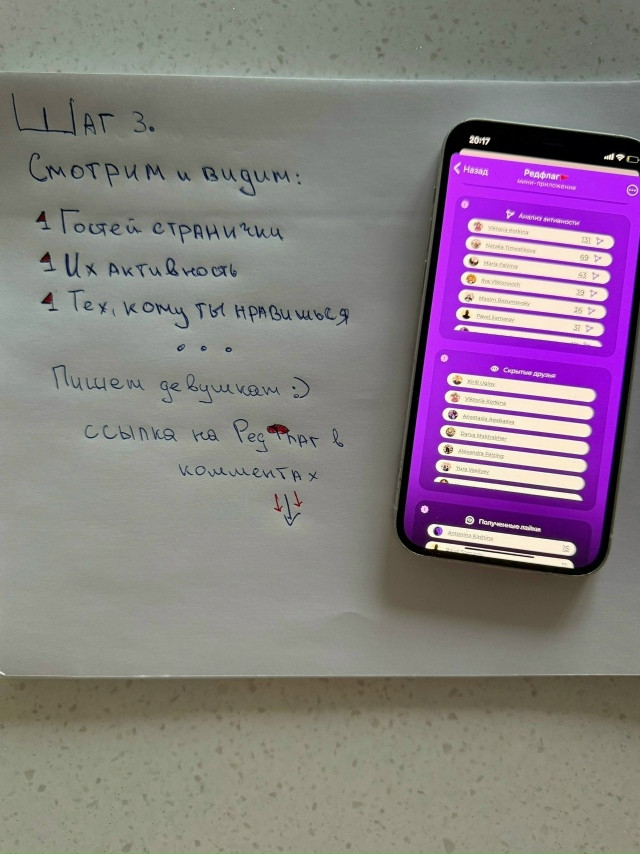 ШАГ 3.
Смотрим и видим:
Гостей странички
Их активность
Тех, кому ты нравишься
...
Пишем девушкам :)
ссылка на РедФлаг в
комментах
20:17
Назад
Редфлаг
мини-приложение
Анализ активности
Viktoria Korkina 131
Natalia Timoshkova 69
Maria 43
Ilya 39
Maxim Razumovsky 36
Pavel 31
Скрытые друзья
Kirill
Viktoria Korkina
Anastasia
Darya
Alexandra
Yura Vasilyev
Полученные лайки
Antonina Korkina